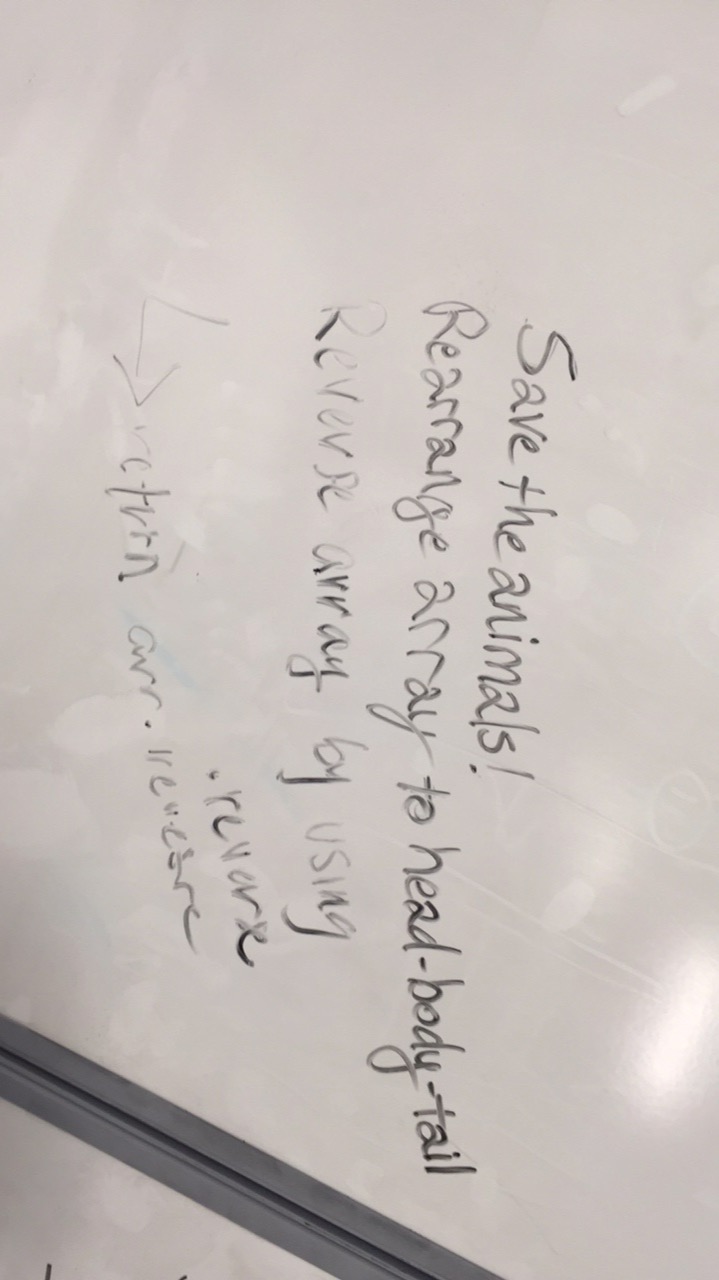 Save the animals!
Rearrange array to head-body-tail
Reverse array by using
.reverse
return arr.reverse